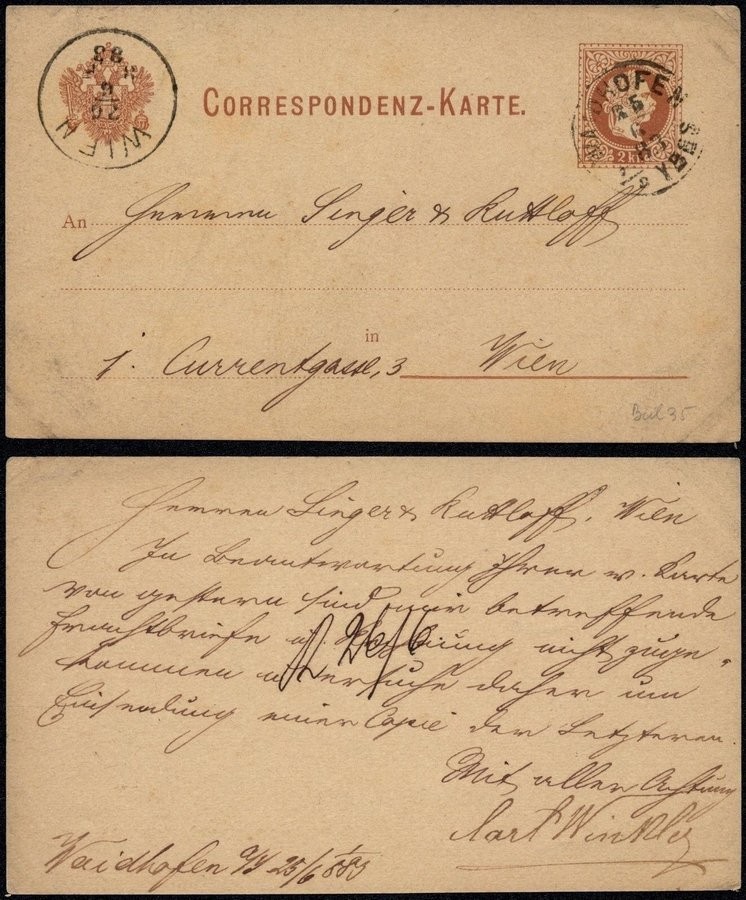 WIEN
88
CORRESPONDENZ-KARTE.
WAIDHOFEN YBBS
25
6
83
2 kr
An Herren Singer & Kuttloff
in
1. Currentgasse, 3 Wien
Bul 35
Herren Singer & Kuttloff, Wien
In Beantwortung Ihrer w. Karte
von gestern sind mir betreffende
Frachtbriefe nicht zuge-
kommen ersuche daher um
Einsendung einer Copie der Letzteren.
26/6
Mit aller Achtung
Karl Winkler
Waidhofen a/Y 25/6 1883